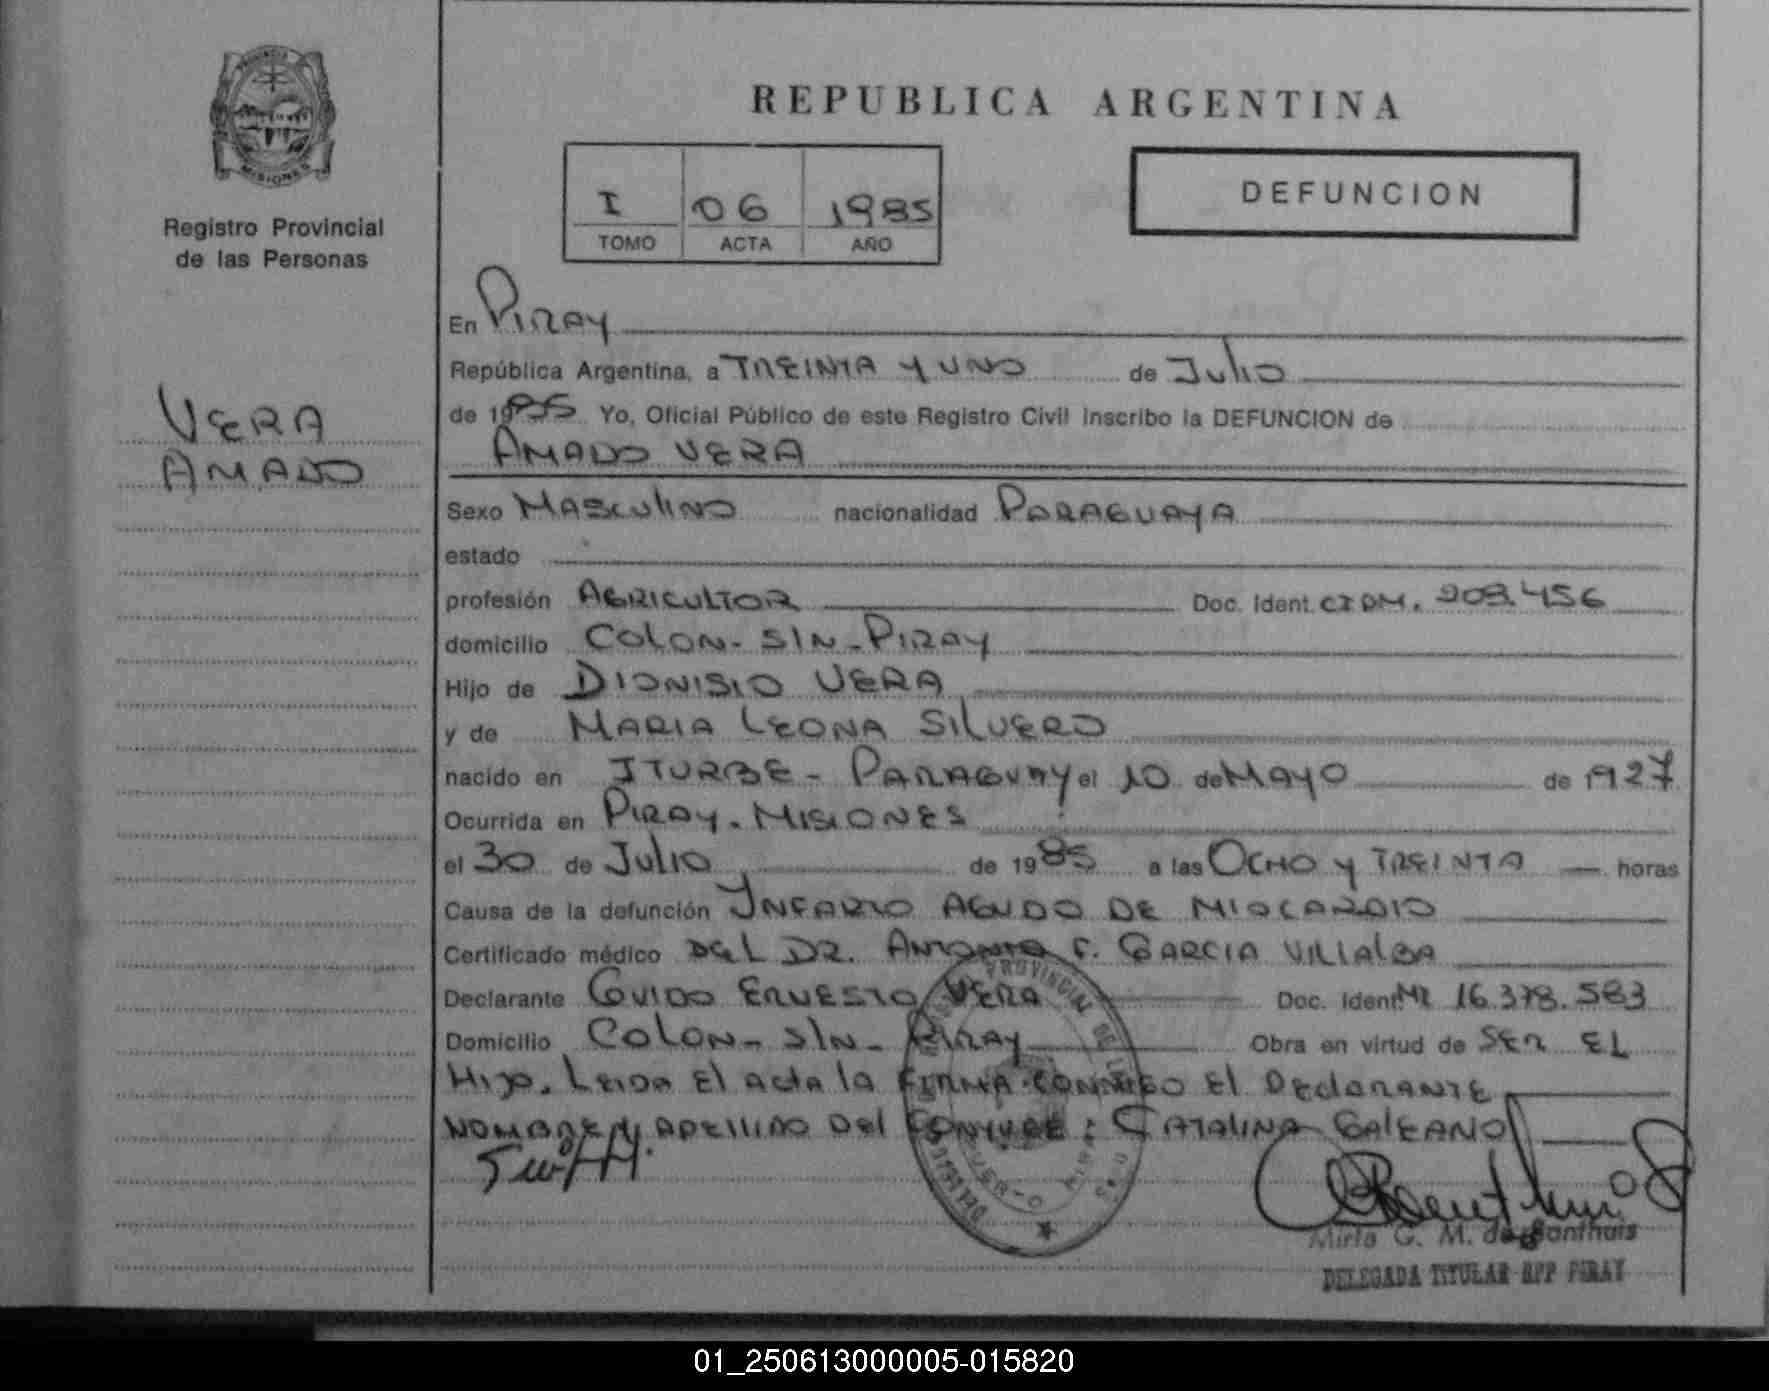 PROVINCIA
MISIONES
Registro Provincial
de las Personas
VERA
AMADO
REPUBLICA ARGENTINA
I 06 1985
TOMO ACTA AÑO
DEFUNCION
En PIRAY
República Argentina, a TREINTA Y UNO de JULIO
de 1985 Yo, Oficial Público de este Registro Civil inscribo la DEFUNCION de
AMADO VERA
Sexo MASCULINO nacionalidad PARAGUAYA
estado
profesión AGRICULTOR Doc. Ident. CIPM. 208.456
domicilio COLON- S/N- PIRAY
Hijo de DIONISIO VERA
y de MARIA LEONA SILVERO
nacido en ITURBE - PARAGUAY el 10 de MAYO de 1927
Ocurrida en PIRAY - MISIONES
el 30 de JULIO de 1985 a las OCHO Y TREINTA horas
Causa de la defunción INFARTO AGUDO DE MIOCARDIO
Certificado médico DEL DR. ANTONIO F. GARCIA VILLALBA
Declarante GUIDO ERNESTO VERA Doc. Ident MI 16.378.583
Domicilio COLON- S/N- PIRAY Obra en virtud de SER EL
HIJO. LEIDA El acta la FIRMA CONMIGO El DECLARANTE
NOMBRE Y APELLIDO DEl CONYUGE : CATALINA GALEANO
Mirta G. M. de Bonthuis
DELEGADA TITULAR RPP PIRAY
01_250613000005-015820